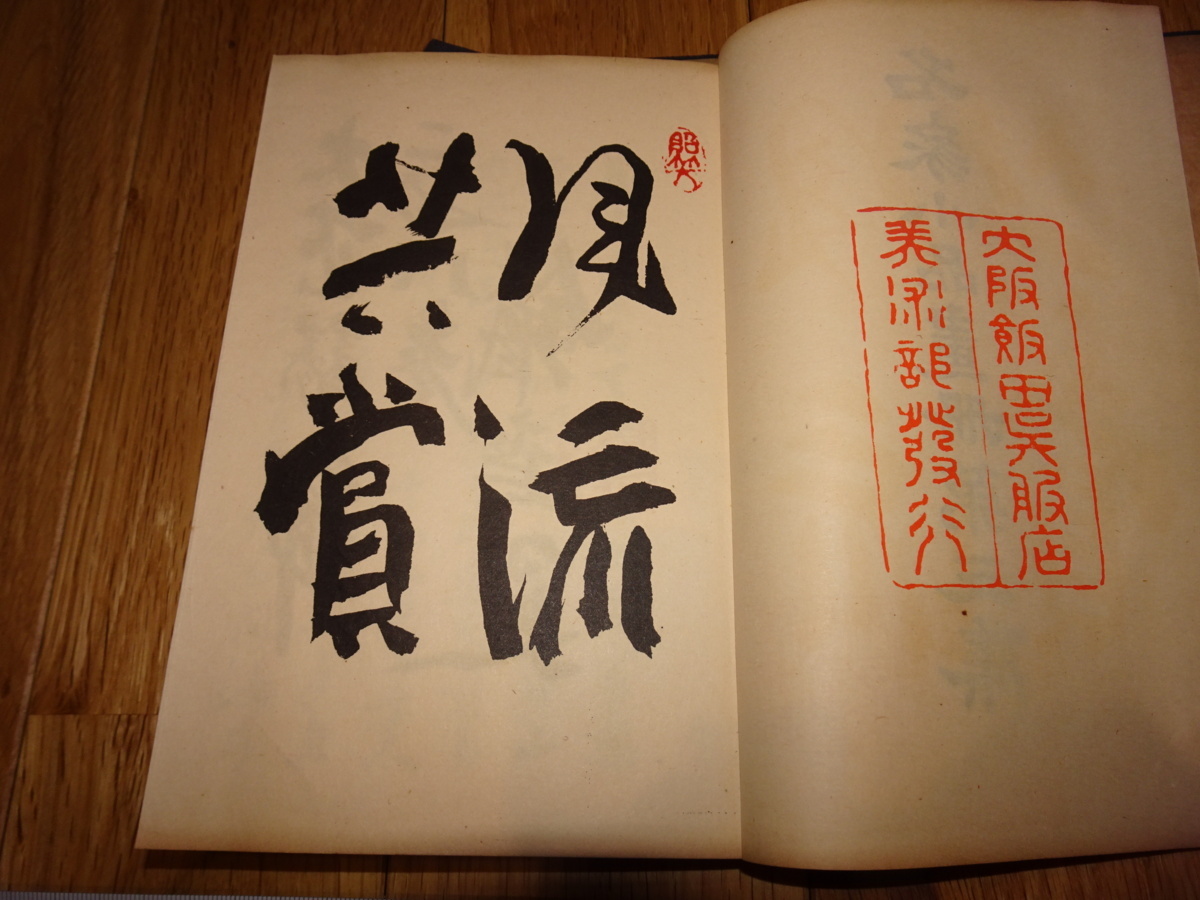 大阪飯田呉服店
美術部發行
風流
共賞